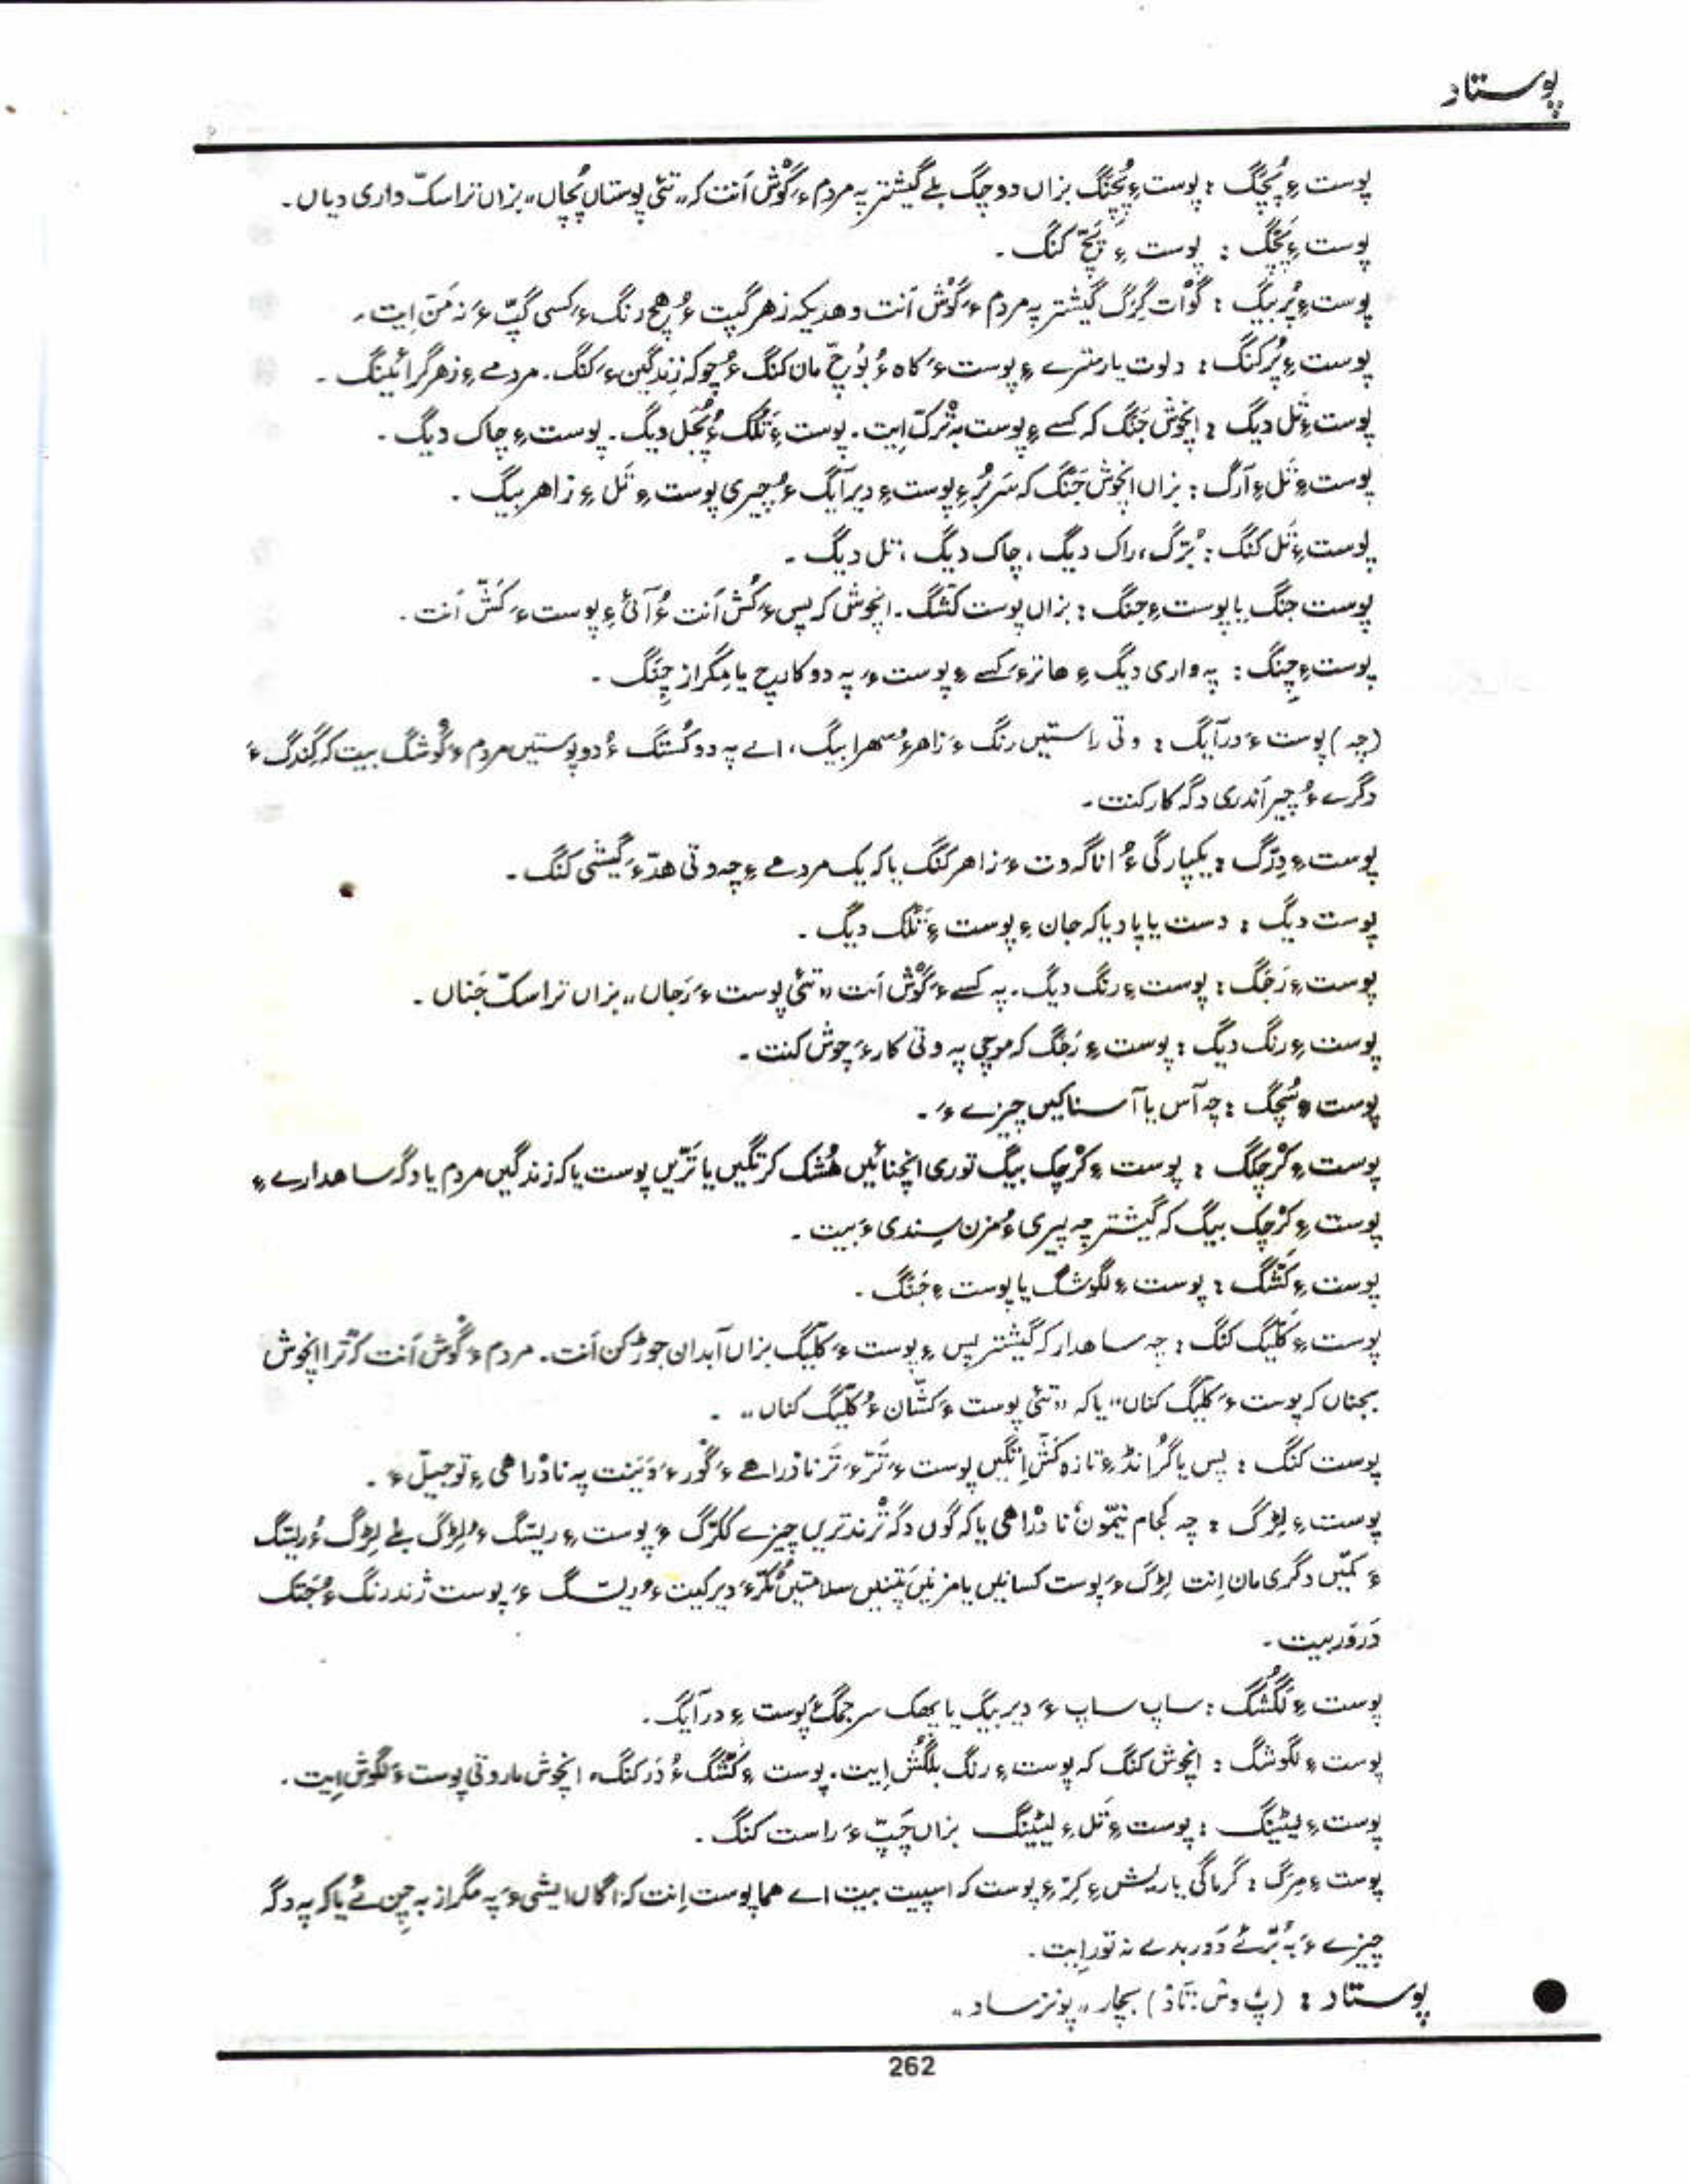 پوستاد
پوست ءِ پُچّگ : پوست ءِ پُچّنگ بزاں دوچگ بلے گیشتر پہ مردم ءَ گوْش اَنت کہ ،،تئی پوستاں پُچّاں،، بزاں ترا سکّ واری دیاں ۔
پوست ءِ پَچّگ : پوست ءِ پَچّ کنگ ۔
پوست ءِ پُر بیگ : گوْات گِرگ گیشتر پہ مردم ءَ گوْش اَنت وهدیکہ زهر گیت ءُ هچ رنگ ءَ کسی گپّ ءَ نہ مَنّ اِیت ۔
پوست ءِ پُر کنگ : دلوت یا رسترے ءِ پوست ءَ کاه ءُ بُوچّ مان کنگ ءُ چو کہ زندگین ءَ کنگ۔ مردمے ءِ زهر گرائینگ ۔
پوست ءِ تَل دیگ : انچوش جَنَگ کہ کسے ءِ پوست بہ تْرکّ اِیت۔ پوست ءِ تَلّک ءُ پُجّل دیگ۔ پوست ءِ چاک دیگ ۔
پوست ءِ تَل ءِ آرگ : بزاں انچوش جَنَگ کہ سَربُر ءِ پوست ءِ دیر آیگ ءُ چیری پوست ءِ تَل ءِ زاهر بیگ ۔
پوست ءِ تَل کنگ : بُرّگ، راک دیگ، چاک دیگ، تل دیگ ۔
پوست جنگ یا پوست ءِ جنگ : بزاں پوست کشّگ۔ انچوش کہ پس ءَ کُش اَنت ءُ آئی ءِ پوست ءَ کَشّ اَنت ۔
پوست ءِ چِنگ : پہ واری دیگ ءِ هاترءَ کسے ءِ پوست ءَ پہ دو کارچ یا مِگراز چِنَگ ۔
(چہ) پوست ءَ در آیگ : وتی راستیں رنگ ءَ زاهر ءُ سهرا بیگ، اے پہ دو کُستگ ءُ دو پوستیں مردم ءَ گوْشگ بیت کہ گِندگ ءَ
دگرے ءُ چیر اَندری دگہ کار کنت ۔
پوست ءِ دِرّگ : یکپارگی ءُ اناگہ وت ءَ زاهر کنگ یا کہ یک مردمے ءِ چہ وتی هدّ ءَ گیشی کنگ ۔
پوست دیگ : دست یا پاد یا کہ جان ءِ پوست ءِ تَلّک دیگ ۔
پوست ءِ رَجگ : پوست ءِ رنگ دیگ۔ پہ کسے ءَ گوْش اَنت ،،تئی پوست ءَ رَجاں،، بزاں ترا سکّ جَناں ۔
پوست ءِ رنگ دیگ : پوست ءِ رَجگ کہ موچی پہ وتی کار ءَ چوش کنت ۔
پوست ءِ سُچگ : چہ آس یا آسناکیں چیزے ءَ ۔
پوست ءِ کرْچکّگ : پوست ءِ کرْچک بیگ توری انچنائیں هُشک کرتگیں یا تَرّیں پوست یا کہ زندگیں مردم یا دگہ ساهدارے ءِ
پوست ءِ کرْچک بیگ کہ گیشتر چہ پیری ءُ مزن سِندی ءَ بیت ۔
پوست ءِ کَشّگ : پوست ءِ لگوشگ یا پوست ءِ جَنَگ ۔
پوست ءِ کَلّیگ کنگ : چہ ساهدار کہ گیشتر پس ءِ پوست ءَ کلّیگ بزاں آبدان جوڑ کن اَنت۔ مردم ءَ گوْش اَنت کہ ترا انچوش
بجناں کہ پوست ءَ کلّیگ کناں،، یا کہ ،،تئی پوست ءَ کشّان ءُ کَلّیگ کناں،، ۔
پوست کنگ : پس یا گُرانڈ ءِ تازه کَشّ اِتگیں پوست ءَ تَرّ ءَ تَر نادْراهے ءِ گْوَر ءَ دَیَنت پہ نادْراهی ءِ توجیلّ ءَ ۔
پوست ءِ لِڑگ : چہ کُجام نیمّونَ نادْراهی یا کہ گوں دگہ تْرندتریں چیزے کُکڑگ ءَ پوست ءِ ریتگ ءُ لِڑگ بلے لِڑگ ءُ ریتگ
ءَ کمّیں دگری مان اِنت لِڑگ ءَ پوست کسانیں یا مزنیں پَتنیں سلامتیں ٹُکّر ءَ دیر کیت ءُ ریتگ ءَ پوست ژند رنگ ءُ جَتک
دَروَر بیت ۔
پوست ءِ لَگُشگ : ساپ ساپ ءَ دیر بیگ یا یهک سرجمگ ءَ پوست ءِ در آیگ ۔
پوست ءِ لگوشگ : انچوش کنگ کہ پوست ءِ رنگ بلَگُش اِیت۔ پوست ءِ کَشّگ ءُ دَر کنگ، انچوش مار وتی پوست ءَ لگوش اِیت ۔
پوست ءِ لیٹینگ : پوست ءِ تَل ءِ لیٹینگ بزاں چَپّ ءُ راست کنگ ۔
پوست ءِ مرگ : گرماگی یا ریش ءِ کِرّ ءِ پوست کہ اسپیت بیت اے هما پوست اِنت کہ اگاں ایشی ءَ پہ مگراز بہ چِن ئے یا کہ پہ دگہ
چیزے ءَ بہ بُرّ ئے دَور بدے نہ تور اِیت ۔
● پوستاد : (پُ وش: تاد) بچار ،،پونزساد،،
262